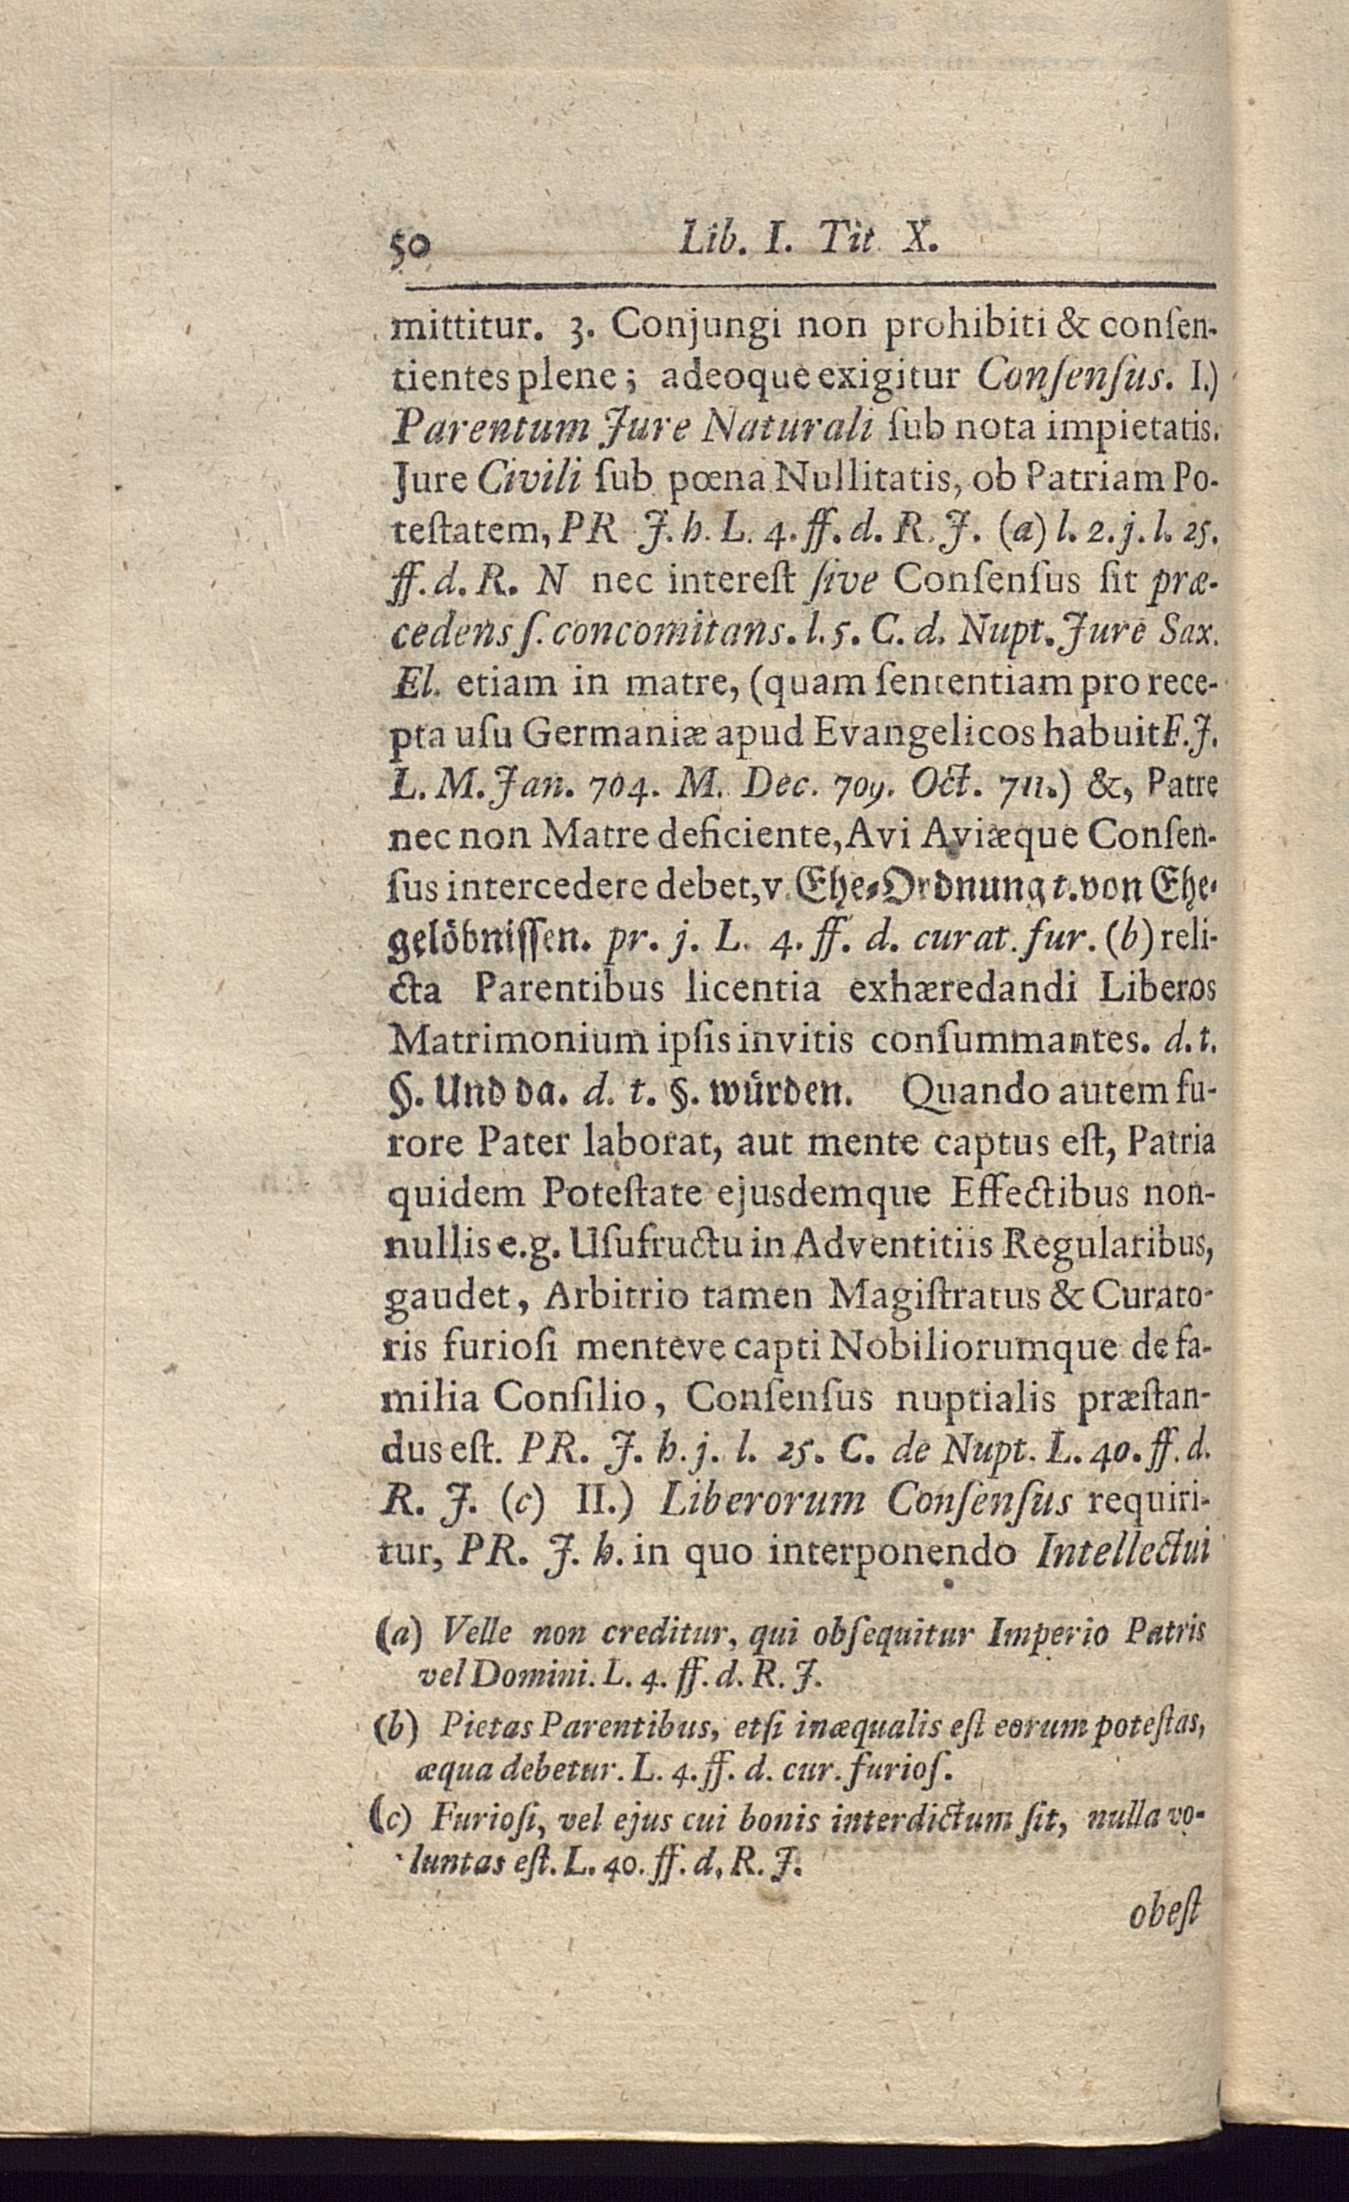 50 Lib. I. Tit. X.
mittitur. 3. Conjungi non prohibiti & conſen-
tientes plene; adeoque exigitur Conſenſus. I.)
Parentum Jure Naturali ſub nota impietatis.
Jure Civili ſub pœna Nullitatis, ob Patriam Po-
teſtatem, PR J. h. L. 4. ff. d. R. J. (a) l. 2. j. l. 25.
ff. d. R. N nec intereſt ſive Conſenſus ſit præ-
cedens ſ. concomitans. l. 5. C. d. Nupt. Jure Sax.
El. etiam in matre, (quam ſententiam pro rece-
pta uſu Germaniæ apud Evangelicos habuit F. J.
L. M. Jan. 704. M. Dec. 709. Oct. 711.) &, Patre
nec non Matre deficiente, Avi Aviæque Conſen-
ſus intercedere debet, v. Ehe-Ordnung t. von Ehe-
gelöbniſſen. pr. j. L. 4. ff. d. curat. fur. (b) reli-
cta Parentibus licentia exhæredandi Liberos
Matrimonium ipſis invitis conſummantes. d. t.
§. Und da. d. t. §. würden. Quando autem fu-
rore Pater laborat, aut mente captus eſt, Patria
quidem Poteſtate ejusdemque Effectibus non-
nullis e. g. Uſufructu in Adventitiis Regularibus,
gaudet, Arbitrio tamen Magiſtratus & Curato-
ris furioſi menteve capti Nobiliorumque de fa-
milia Conſilio, Conſenſus nuptialis præſtan-
dus eſt. PR. J. h. j. l. 25. C. de Nupt. L. 40. ff. d.
R. J. (c) II.) Liberorum Conſenſus requiri-
tur, PR. J. h. in quo interponendo Intellectui
(a) Velle non creditur, qui obſequitur Imperio Patris
vel Domini. L. 4. ff. d. R. J.
(b) Pietas Parentibus, etſi inæqualis eſt eorum poteſtas,
æqua debetur. L. 4. ff. d. cur. furioſ.
(c) Furioſi, vel ejus cui bonis interdictum ſit, nulla vo-
luntas eſt. L. 40. ff. d. R. J.
obeſt